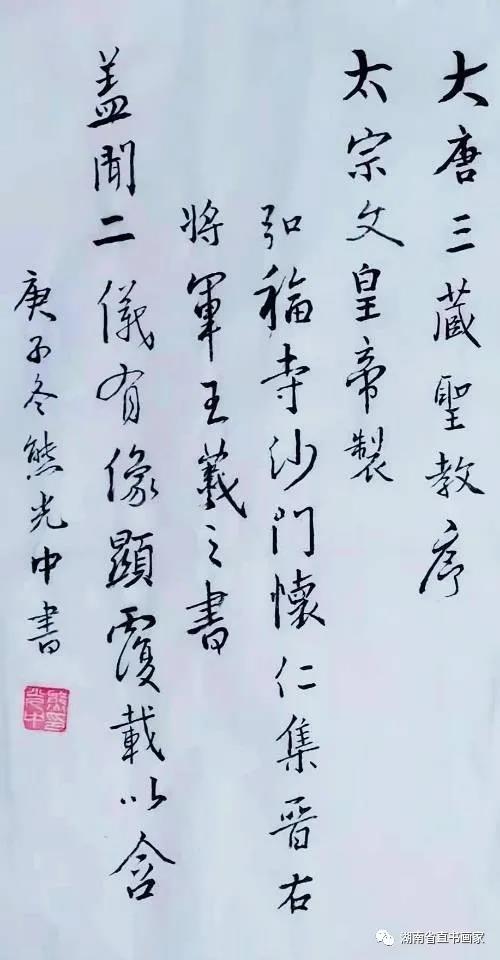 大唐三藏聖教序
太宗文皇帝製
弘福寺沙門懷仁集晉右
將軍王羲之書
蓋聞二儀有像顯覆載以含
庚子冬熊光中書
湖南省直书画家